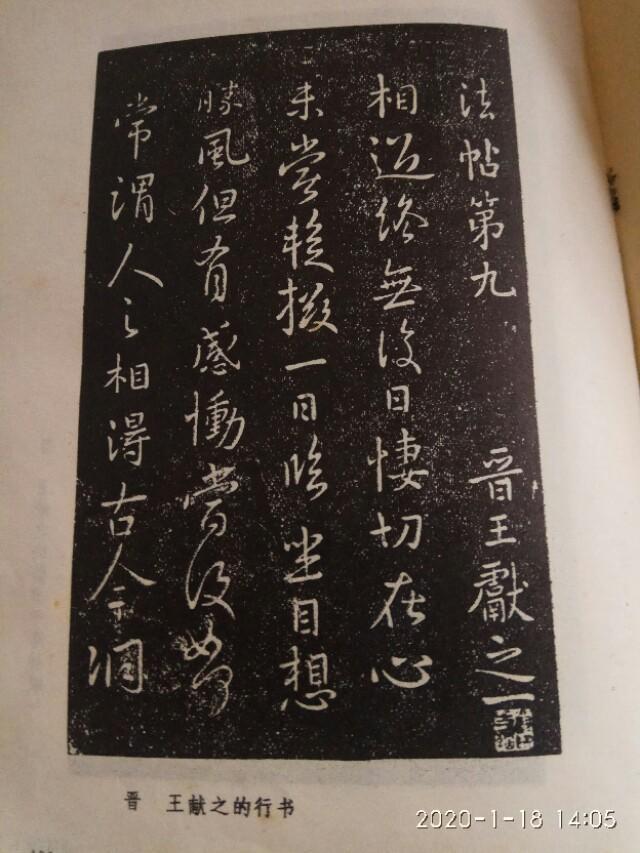 法帖第九 晋王獻之一
相過終無復日悽切在心
未嘗輟掇一日臨坐目想
勝風但有感慟當復如何
常謂人之相得古今洞
晋 王献之的行书
2020-1-18 14:05